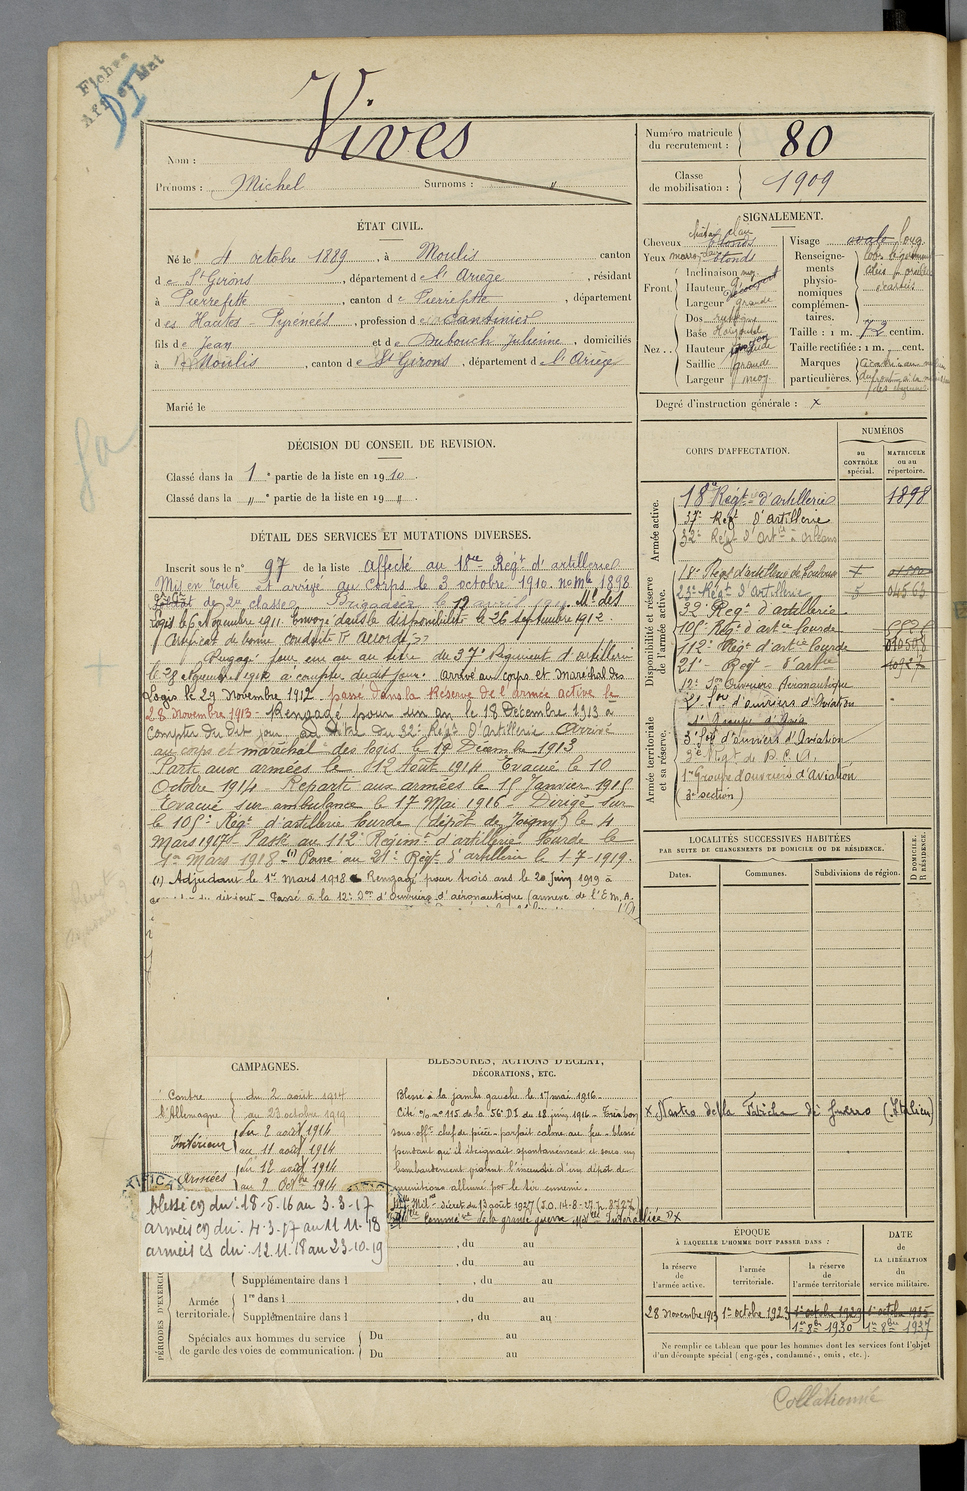 Fiches
Aff Mat
DI
Vives
Nom :
Prénoms : Michel Surnoms : "
Numéro matricule
du recrutement : 80
Classe
de mobilisation : 1909
ÉTAT CIVIL.
Né le 4 octobre 1889, à Moulis canton
de St Girons, département de l'Ariège, résidant
à Pierrefitte, canton de Pierrefitte, département
des Hautes-Pyrénées, profession de Cantinier
fils de Jean et de Dubouch Julienne, domiciliés
à Moulis, canton de St Girons, département de l'Ariège
Marié le
SIGNALEMENT.
Cheveux châtain clair blonds
Yeux marron blonds
Inclinaison moy.
Front. Hauteur
Largeur grande
Dos
Base Horizontale
Nez .. Hauteur
Saillie grande
Largeur moy
Visage ovale long
Renseigne-
ments
physio-
nomiques
complémen-
taires.
Taille : 1 m. 72 centim.
Taille rectifiée : 1 m. cent.
Marques
particulières.
Degré d'instruction générale : x
DÉCISION DU CONSEIL DE REVISION.
Classé dans la 1e partie de la liste en 1910.
Classé dans la " e partie de la liste en 19 ".
DÉTAIL DES SERVICES ET MUTATIONS DIVERSES.
Inscrit sous le n° 97 de la liste Affecté au 18me Régt d'artillerie
Mis en route et arrivé au corps le 3 octobre 1910. no mle 1898
soldat de 2e classe Brigadier le 19 avril 1911. Mal des
Logis le 6 Novembre 1911. Envoyé dans la disponibilité le 26 septembre 1912.
Certificat de bonne conduite "Accordé"
Rengagé pour un an au titre du 37e Régiment d'artillerie
le 28 novembre 1912 à compter dudit jour. Arrivé au corps et Maréchal des
Logis le 29 Novembre 1912 - passé dans la Réserve de l'armée active le
28 novembre 1913 - Rengagé pour un an le 18 Décembre 1913 à
compter du dit jour, au titre du 32e Régt d'Artillerie Arrivé
au corps et maréchal des logis le 19 Décembre 1913
Parti aux armées le 12 Août 1914 Evacué le 10
Octobre 1914 - Reparti aux armées le 15 Janvier 1915
Evacué sur ambulance le 17 Mai 1916 - Dirigé sur
le 105e Régt d'artillerie lourde (dépôt de Joigny) le 4
Mars 1917 - Passé au 112e Régimt d'artillerie lourde le
1er Mars 1918 - (1) Passé au 21e Régt d'artillerie le 1-7-1919.
(1) Adjudant le 1er Mars 1918 - Rengagé pour trois ans le 20 Juin 1919 à
Passé à la 12e Son d'Ouvriers d'aéronautique (annexe de l'E.M.A.
CORPS D'AFFECTATION.
NUMÉROS
au
CONTRÔLE
spécial.
MATRICULE
ou au
répertoire.
Armée active.
18e Régt d'artillerie 1898
37e Régt d'artillerie
32e Régt d'Artie à Orléans
Disponibilité et réserve
de l'armée active.
18e Régt d'artillerie de Toulouse
23e Régt d'Artillerie 5 04563
32e Régt d'artillerie
105e Régt d'artie Lourde
112e Régt d'artie Lourde
21e Régt d'artie
12e Son Ouvriers Aéronautique
Armée territoriale
et sa réserve.
2e Son d'ouvriers d'Aviation
1er Groupe d'Avia
3e Son d'ouvriers d'Aviation
Régt de D.C.A.
1er Groupe d'ouvriers d'aviation
(3e section)
LOCALITÉS SUCCESSIVES HABITÉES
PAR SUITE DE CHANGEMENTS DE DOMICILE OU DE RÉSIDENCE.
D DOMICILE.
R RÉSIDENCE.
Dates. Communes. Subdivisions de région.
CAMPAGNES.
Contre du 2 août 1914
l'Allemagne au 23 octobre 1919
Intérieur du 2 août 1914
au 11 août 1914
Armées du 12 août 1914
au 9 Octbre 1914
blessé cg du : 18-5-16 au 3-3-17
armées cg du : 4-3-17 au 11-11-18
armées cs du : 12-11-18 au 23-10-19
BLESSURES, ACTIONS D'ÉCLAT,
DÉCORATIONS, ETC.
Blessé à la jambe gauche le 17 mai 1916 -
Cité o/o no 115 de la 56e DI du 18 juin 1916 - Très bon
sous-offr chef de pièce - parfait calme au feu - blessé
pendant qu'il éteignait spontanément et sous un
bombardement violent l'incendie d'un dépôt de
munitions allumé par le tir ennemi.
Mil - décret du 13 août 1927 (J.O. 14-8-27 p. 8727
Commve de la grande guerre - Interalliée x
x Nastro della Fatiche di Guerra (Italien)
PÉRIODES D'EXERCICES
Supplémentaire dans l , du au
Armée
territoriale.
1re dans l , du au
Supplémentaire dans l , du au
Spéciales aux hommes du service
de garde des voies de communication.
Du au
Du au
ÉPOQUE
À LAQUELLE L'HOMME DOIT PASSER DANS :
DATE
de
LA LIBÉRATION
du
service militaire.
la réserve
de
l'armée active.
l'armée
territoriale.
la réserve
de
l'armée territoriale
28 Novembre 1913 1er octobre 1923 1er octobre 1929 1er octobre 1935
1er 8bre 1930 1er 8bre 1937
Ne remplir ce tableau que pour les hommes dont les services font l'objet
d'un décompte spécial (engagés, condamnés, omis, etc.).
Collationné